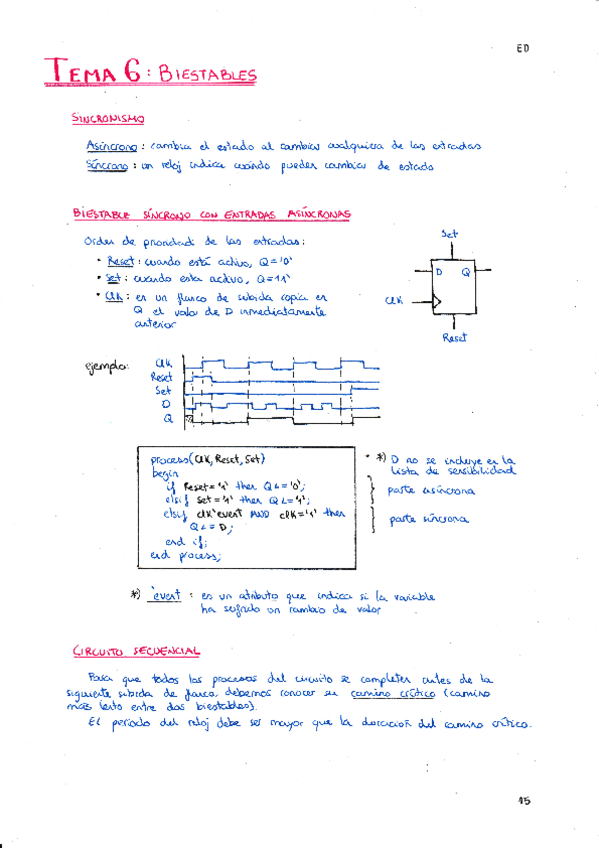 ED
TEMA 6: BIESTABLES
SINCRONISMO
Asíncrono: cambia el estado al cambiar cualquiera de las entradas
Síncrono: un reloj indica cuándo pueden cambiar de estado
BIESTABLE SÍNCRONO CON ENTRADAS ASÍNCRONAS
Orden de prioridad de las entradas:
• Reset: cuando está activo, Q='0'
• Set: cuando esta activo, Q='1'
• Clk: en un flanco de subida copia en
Q el valor de D inmediatamente
anterior
Set
D Q
Clk
Reset
ejemplo:
Clk
Reset
Set
D
Q
process(Clk, Reset, Set)
begin
if Reset='1' then Q<='0';
elsif Set='1' then Q<='1';
elsif clk'event AND clk='1' then
Q<=D;
end if;
end process;
• *) D no se incluye en la
lista de sensibilidad
parte asíncrona
parte síncrona
*) 'event: es un atributo que indica si la variable
ha sufrido un cambio de valor
CIRCUITO SECUENCIAL
Para que todos los procesos del circuito se completen antes de la
siguiente subida de flanco, debemos conocer su camino crítico (camino
más lento entre dos biestables).
El periodo del reloj debe ser mayor que la duración del camino crítico.
15